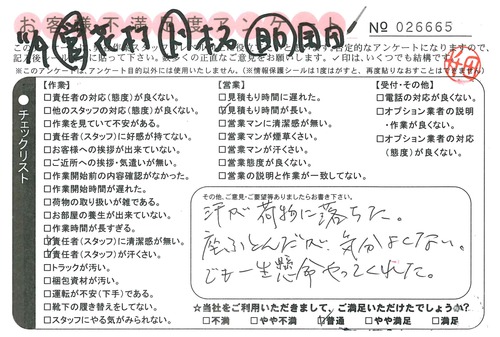 お客様不満足度アンケート
№ 026665
記入後シールを貼って下さい。数多くの正直なご意見をお願いします。✓印は、いくつでも結構です。
※このアンケートは、アンケート目的以外には使用いたしません。(※情報保護シールは1度はがすと、再度貼りなおすことはできません)
チェックリスト
【作業】
□責任者の対応(態度)が良くない。
□他のスタッフの対応(態度)が良くない。
□作業を見ていて不安がある。
□責任者(スタッフ)に好感が持てない。
□お客様への挨拶が出来ていない。
□ご近所への挨拶・気遣いが無い。
□作業開始前の内容確認がなかった。
□作業開始時間が遅れた。
□荷物の取り扱いが雑である。
□お部屋の養生が出来ていない。
□作業時間が長すぎる。
☑責任者(スタッフ)に清潔感が無い。
☑責任者(スタッフ)が汗くさい。
□トラックが汚い。
□梱包資材が汚い。
□運転が不安(下手)である。
□靴下の履き替えをしてない。
□スタッフにやる気がみられない。
【営業】
□見積もり時間に遅れた。
☑見積もり時間が長い。
□営業マンに清潔感が無い。
□営業マンが煙草くさい。
□営業マンが汗くさい。
□営業態度が良くない。
□営業の説明と作業が一致してない。
【受付・その他】
□電話の対応が良くない。
□オプション業者の説明
・作業が良くない。
□オプション業者の対応
(態度)が良くない。
その他、ご意見・ご要望等ありましたらお書き下さい。
汗が荷物に落ちた。
座ふとんだが、気分よくない。
でも一生懸命やってくれた。
☆当社をご利用いただきまして、ご満足いただけたでしょうか?
□不満 □やや不満 ☑普通 □やや満足 □満足